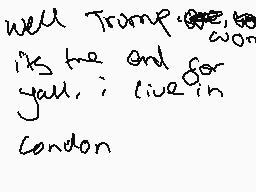 well Trump won
its the end for
yall. i live in
london